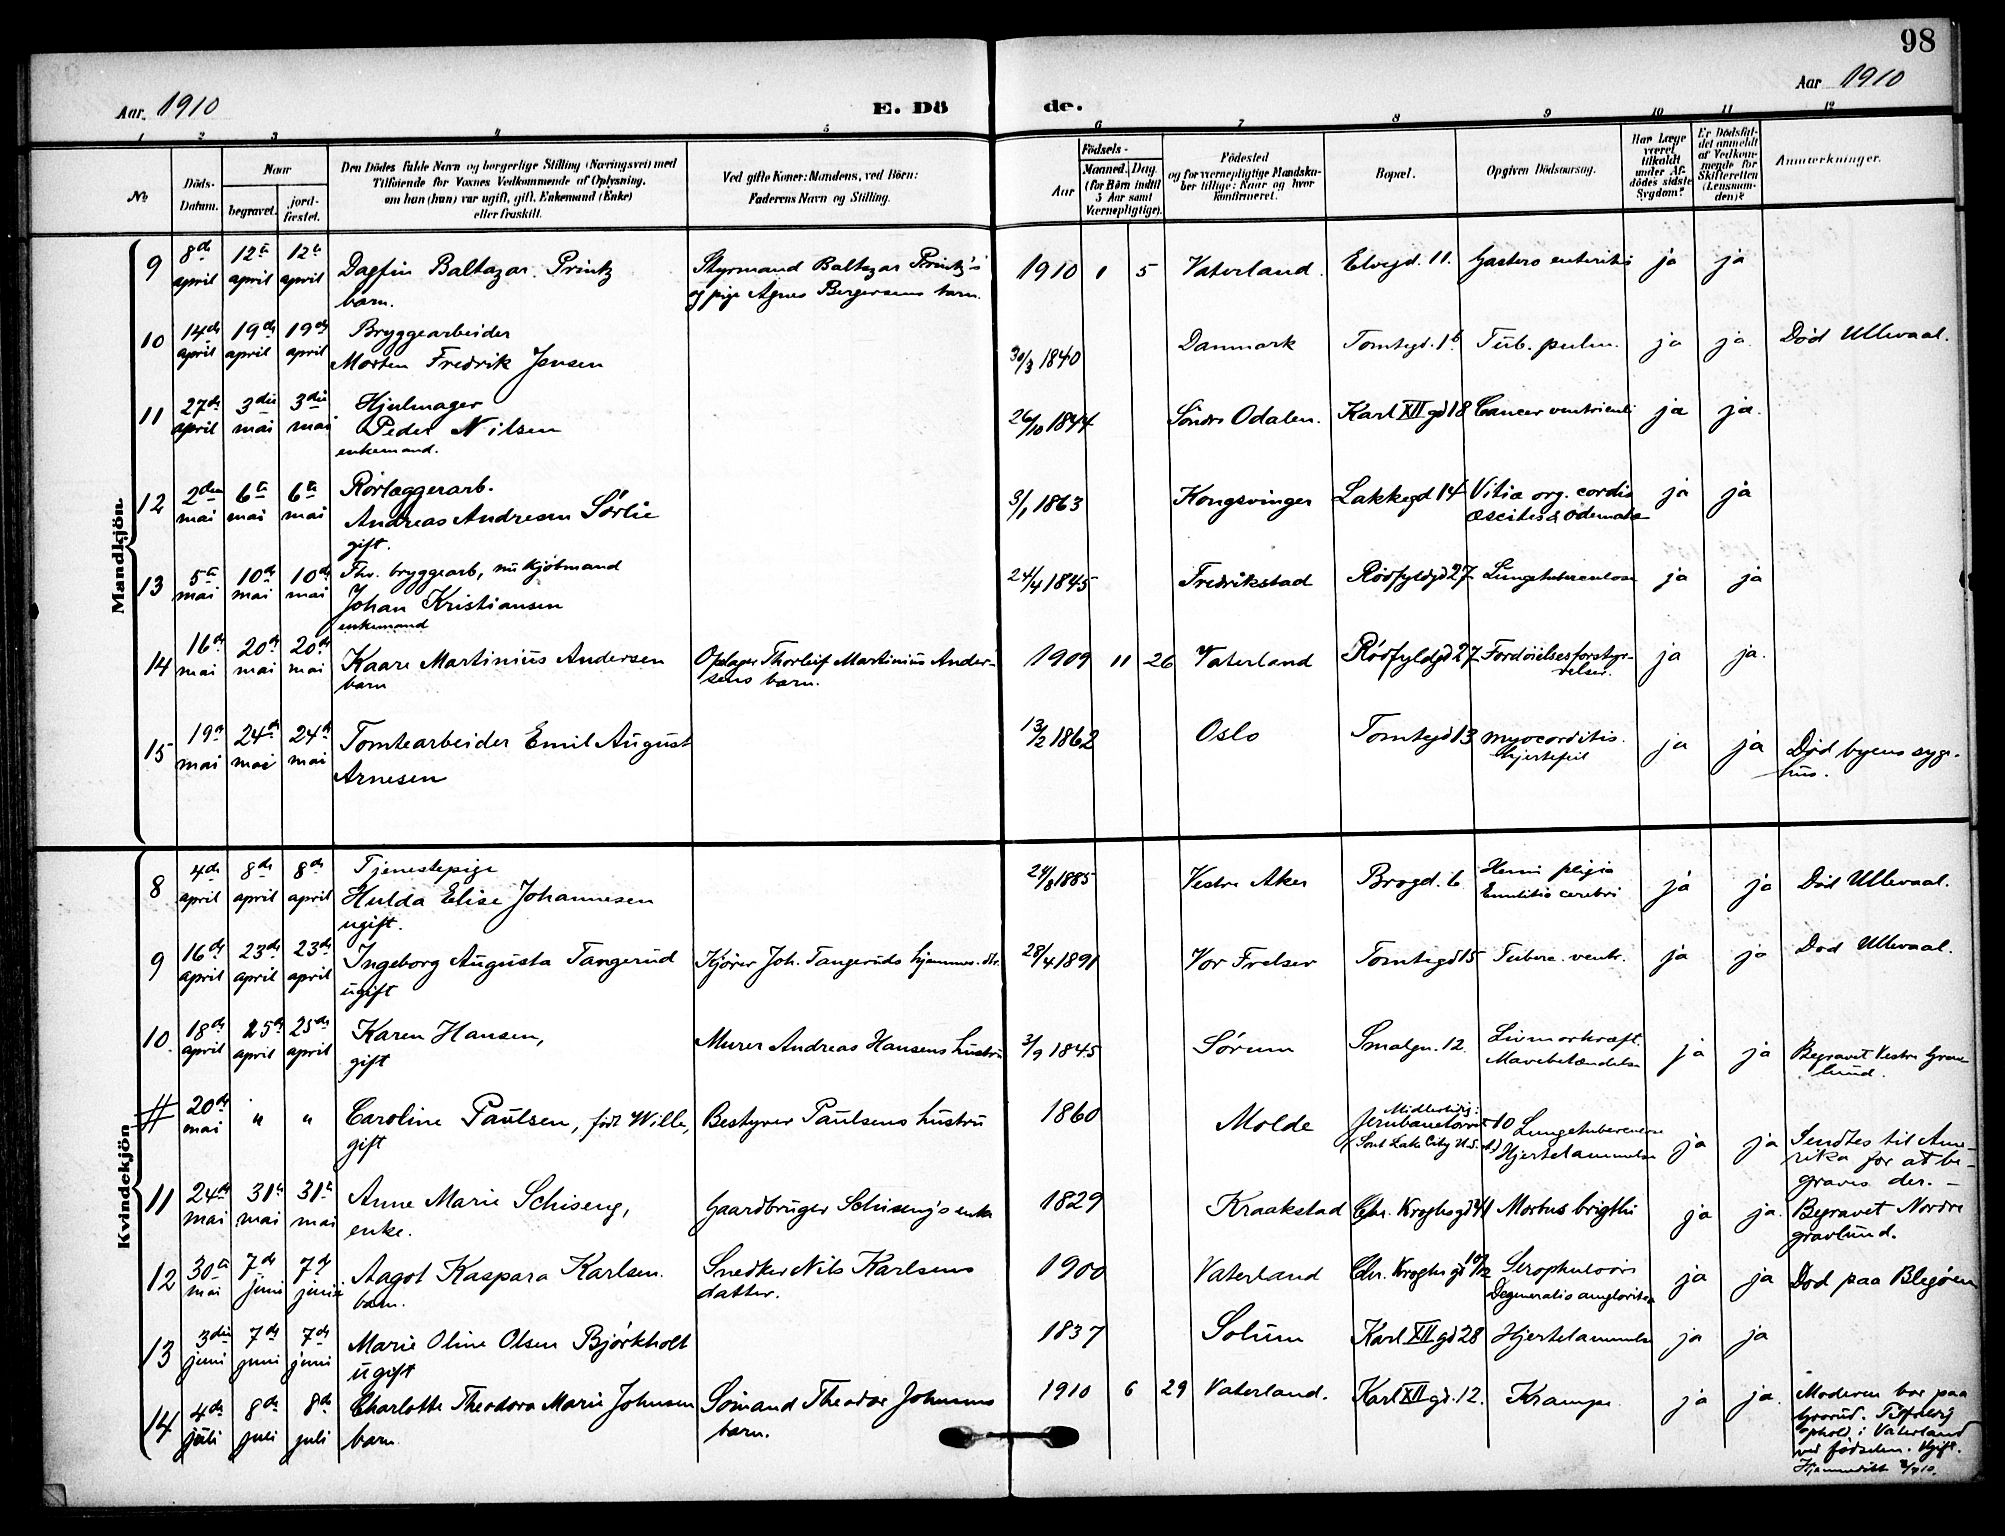 98
Aar. 1910
E. Dö
de.
Aar 1910
1 2 3 4 5 6 7 8 9 10 11 12
No
Döds-Datum.
Naar
begravet.
jord-fæstet.
Den Dödes fulde Navn og borgerlige Stilling (Næringsvei) med
Tilföiende for Voxnes Vedkommende af Oplysning,
om han (hun) var ugift, gift, Enkemand (Enke)
eller fraskilt.
Ved gifte Koner: Mandens, ved Börn:
Faderens Navn og Stilling.
Födsels-
Aar
Maaned. Dag.
(for Börn indtil
5 Aar samt
Værnepligtige).
Födested
og for værnepligtige Mandska-
ber tillige: Naar og hvor
konfirmeret.
Bopæl.
Opgiven Dödsaarsag.
Har Læge
været
tilkaldt
under Af-
dödes sidste
Sygdom?
Er Dödsfal-
det anmeldt
af Vedkom-
mende for
Skifteretten
(Lensman-
den)?
Anmærkninger.
Mandkjön.
9 8de april 12te april 12te april Dagfin Baltazar Printz
barn.
Styrmand Baltazar Printz's
og pige Agnes Bergersens barn.
1910 1 5 Vaterland. Elvegd. 11. Gastero enteritis ja ja
10 14de april 19de april 19de april Bryggearbeider
Morten Fredrik Jensen
30/3 1840 Danmark Tomtegd. 1b Tub. pulm. ja ja. Död Ullevaal.
11 27de april 3die mai 3die mai Hjulmager
Peder Nilsen
enkemand.
26/10 1844 Söndre Odalen. Karl XII gd 18 Cancer ventriculi ja ja.
12 2den mai 6te mai 6te mai Rørlæggerarb.
Andreas Andresen Sörlie
gift.
3/1 1863 Kongsvinger Lakkegd 14 Vitia org. cordis
ascites & ödemata ja ja
13 5te mai 10de mai 10de mai Fhv. bryggearb, nu kjöbmand
Johan Kristiansen
enkemand
24/4 1845 Fredrikstad Rödfyldgd 27 Lungetuberculose ja ja
14 16de mai 20de mai 20de mai Kaare Martinius Andersen
barn
Oplager Thorleif Martinius Ander-
sens barn.
1909 11 26 Vaterland Rödfyldgd 27 Fordöielsesforstyr-
relser. ja ja.
15 19de mai 24de mai 24de mai Tomtearbeider Emil August
Arnesen
13/2 1862 Oslo Tomtegd 13 myocorditis.
Hjertefeil ja ja Död byens syge-
hus.
Kvindekjön
8 4de april 8de april 8de april Tjenestepige
Hulda Elise Johannesen
ugift.
24/8 1885 Vestre Aker Brogd. 6 Hemi plegia
cerebri ja ja Död Ullevaal.
9 16de april 23de april 23de april Ingeborg Augusta Tangerud
ugift
Kjörer Joh. Tangeruds hjemmev. dtr.
28/4 1891 Vor Frelser Tomtegd 15 Tuberc. ventr. ja ja Död Ullevaal.
10. 18de april 25de april 25de april Karen Hansen,
gift
Murer Andreas Hansens hustru
3/9 1845 Sörum Smalgn. 12. Livmorkræft.
Mavebetændelse ja ja Begravet Vestre Grav-
lund.
# 20de mai " " Caroline Paulsen, född Wille,
gift
Bestyrer Paulsens hustru
1860 Molde Midlertidig:
Jernbanetorvet 10
(Sant Lake City U.S.A.)
Lungetuberculose
Hjertelammelse ja ja Sendtes til Ame-
rika for at be-
graves der. -
11 24de mai 31te mai 31te mai Anne Marie Schiseng,
enke.
Gaardbruger Schisengs enke
1829 Kraakstad Chr. Kroghsgd 41 Morbus brigthii ja ja. Begravet Nordre
gravlund.
12 30te mai 7de juni 7de juni Aagot Kaspara Karlsen.
barn.
Snedker Nils Karlsens
datter.
1900 Vaterland Chr. Kroghs gd Scrophulosis
Degeneratio ja ja Död paa Blegöen
13 3die juni 7de juni 7de juni Marie Oline Olsen Björkholt
ugift
1837 Solum Karl XII gd 28 Hjertelammelse ja ja
14 4de juli 8de juli 8de juli Charlotte Theodora Marie Johnsen
barn
Sömand Theodor Johnsens
barn.
1910 6 29 Vaterland. Karl XII gd. 12. Krampe ja ja. Moderen bor paa
Grorud. Tilfældig
ophold i Vaterland
ved födselen. Ugift.